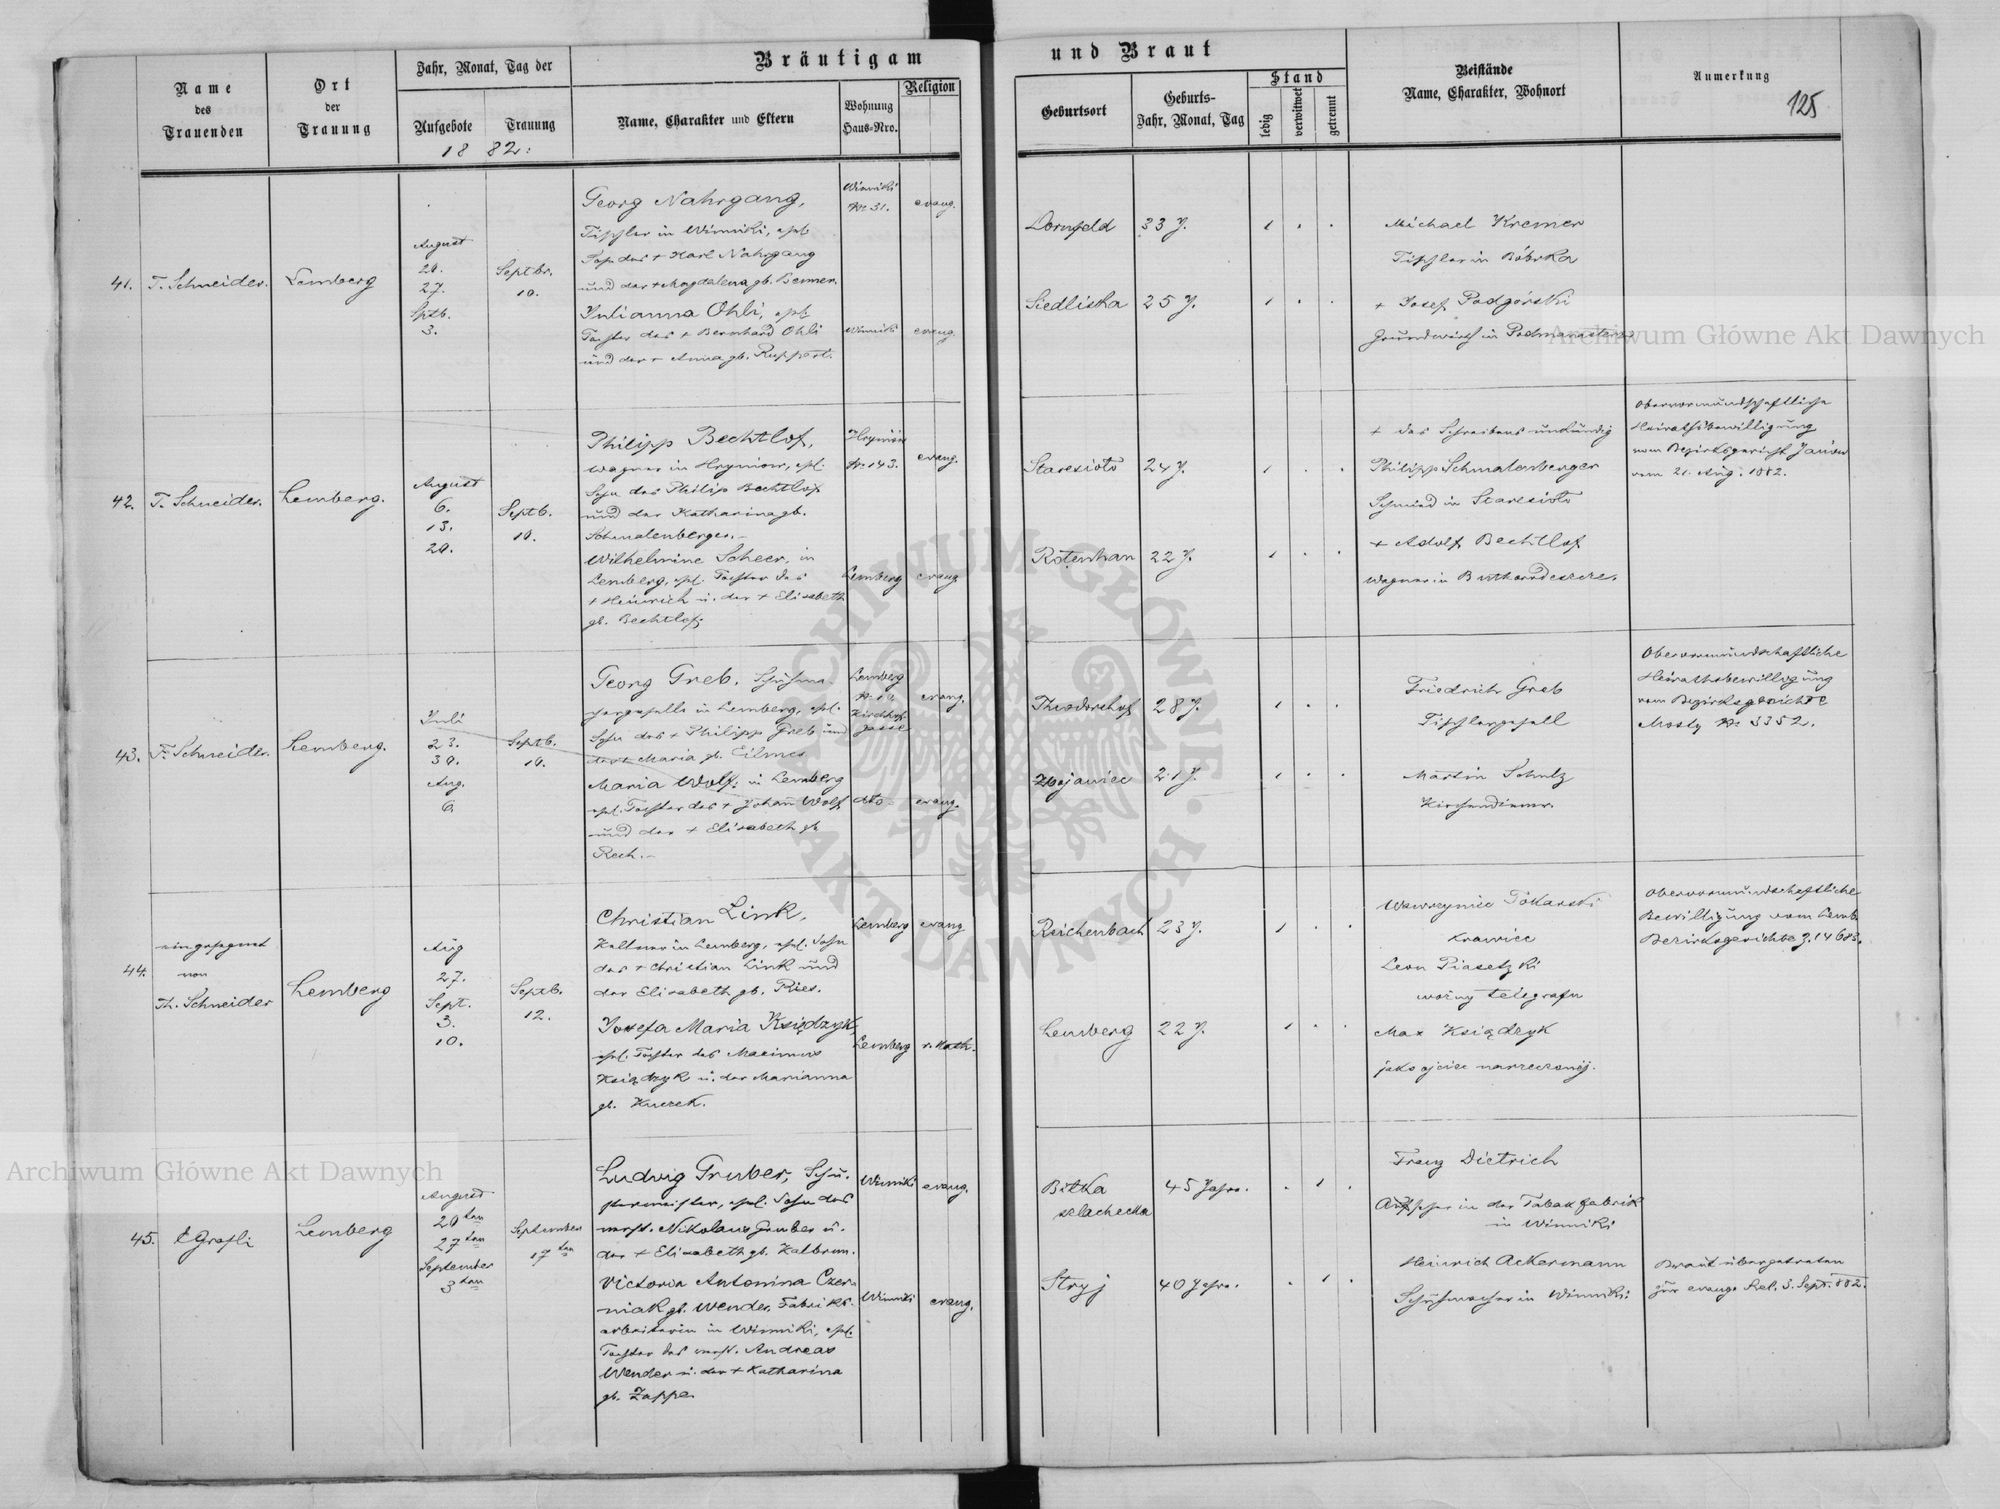 Bräutigam und Braut
125
Name des Trauenden
Ort der Trauung
Jahr, Monat, Tag der
Aufgebote
Trauung
1882:
Name, Charakter und Eltern
Wohnung Haus-Nro.
Religion
Geburtsort
Geburts- Jahr, Monat, Tag
Stand
ledig
verwitwet
getrennt
Beistände
Name, Charakter, Wohnort
Anmerkung
41.
T. Schneider.
Lemberg
August
20.
27.
Septb.
3.
Septbr.
10.
Georg Nahrgang,
Tischler in Winniki, ehel.
Sohn des + Karl Nahrgang
und der + Magdalena gb.
Winniki
Nr 31.
evang.
Julianna Ohli, ehel.
Tochter des + Bernhard Ohli
und der + Anna gb. Ruppert.
Winniki
evang.
Dornfeld
33 J.
Siedliska
25 J.
Michael Kremer
Tischler in Bóbrka
+ Josef Podgórski
Grundwirth in
42.
T. Schneider.
Lemberg.
August
6.
13.
20.
Septb.
10.
Philipp Bechtlof,
Wagner in Hryniow, ehel.
Sohn des Philip Bechtlof
und der Katharina gb.
Schmalenberger.–
Hryniów
Nr. 143.
evang.
Wilhelmine Scheer, in
Lemberg, ehel. Tochter des
+ Heinrich u. der + Elisabeth
gb. Bechtlof.
Lemberg
evang
24 J.
Rotenhan
22 J.
+ des Schreibens unkundig
Philipp Schmalenberger
Schmied in
+ Adolf Bechtlof
Wagner in
Obervormundschaftliche
Heirathsbewilligung
vom Bezirksgericht Janów
vom 21. Aug. 1882.
43.
T. Schneider.
Lemberg.
Juli
23.
30.
Aug.
6.
Septb.
10.
Georg Greb, Schuhma-
chergeselle in Lemberg, ehel.
Sohn des + Philipp Greb und
der + Maria gb. Eilmes
Lemberg
Kirchhof-
gasse
evang.
Maria Wolf, in Lemberg
ehel. Tochter des + Johann Wolf
und der + Elisabeth gb
Rech.–
dto
evang.
Theodorshof
28 J.
21 J.
Friedrich Greb
Tischlergesell
Martin Schulz
Kirchendiener.
Obervormundschaftliche
Heirathsbewilligung
vom Bezirksgerichte
Mosty Nr 3352.
44.
eingesegnet
von
Th. Schneider
Lemberg
Aug
27.
Sept.
3.
10.
Septb.
12.
Christian Link,
Kellner in Lemberg, ehel. Sohn
des + Christian Link und
der Elisabeth gb. Ries.
Lemberg
evang
Josefa Maria Księdzyk,
ehel. Tochter des Maximus
Księdzyk u. der Marianna
gb. Kuczek.
Lemberg
r. Kath.
Reichenbach
23 J.
Lemberg
22 J.
Wawrzyniec Tokarski
krawiec
Leon Piasetzki
woźny telegrafu
Max Książdzyk
jako ojciec narzeczonéj.
Obervormundschaftliche
Bewilligung vom Lemb.
Bezirksgerichte Z. 14683.
45.
Lemberg
August
20ten
27ten
September
3ten
September
17ten
Ludwig Gruber, Schu-
stermeister, ehel. Sohn des
verst. Nikolaus Gruber u.
der + Elisabeth gb. Kalbrun.
Winniki
evang.
Victoria Antonina Czer-
niak gb. Wender, Fabriks-
arbeiterin in Winniki, ehel.
Tochter des verst. Andreas
Wender u. der + Katharina
gb. Zappe.
Winniki
evang.
Bilka
szlachecka
45 Jahre.
Stryj
40 Jahre.
Franz Dietrich
Aufseher in der Tabakfabrik
in Winniki
Heinrich Ackermann
Schuhmacher in Winniki.
Braut übergetreten
zur evang. Rel. 3. Sept. 882.
Archiwum Główne Akt Dawnych
Archiwum Główne Akt Dawnych
ARCHIWUM GŁÓWNE AKT DAWNYCH